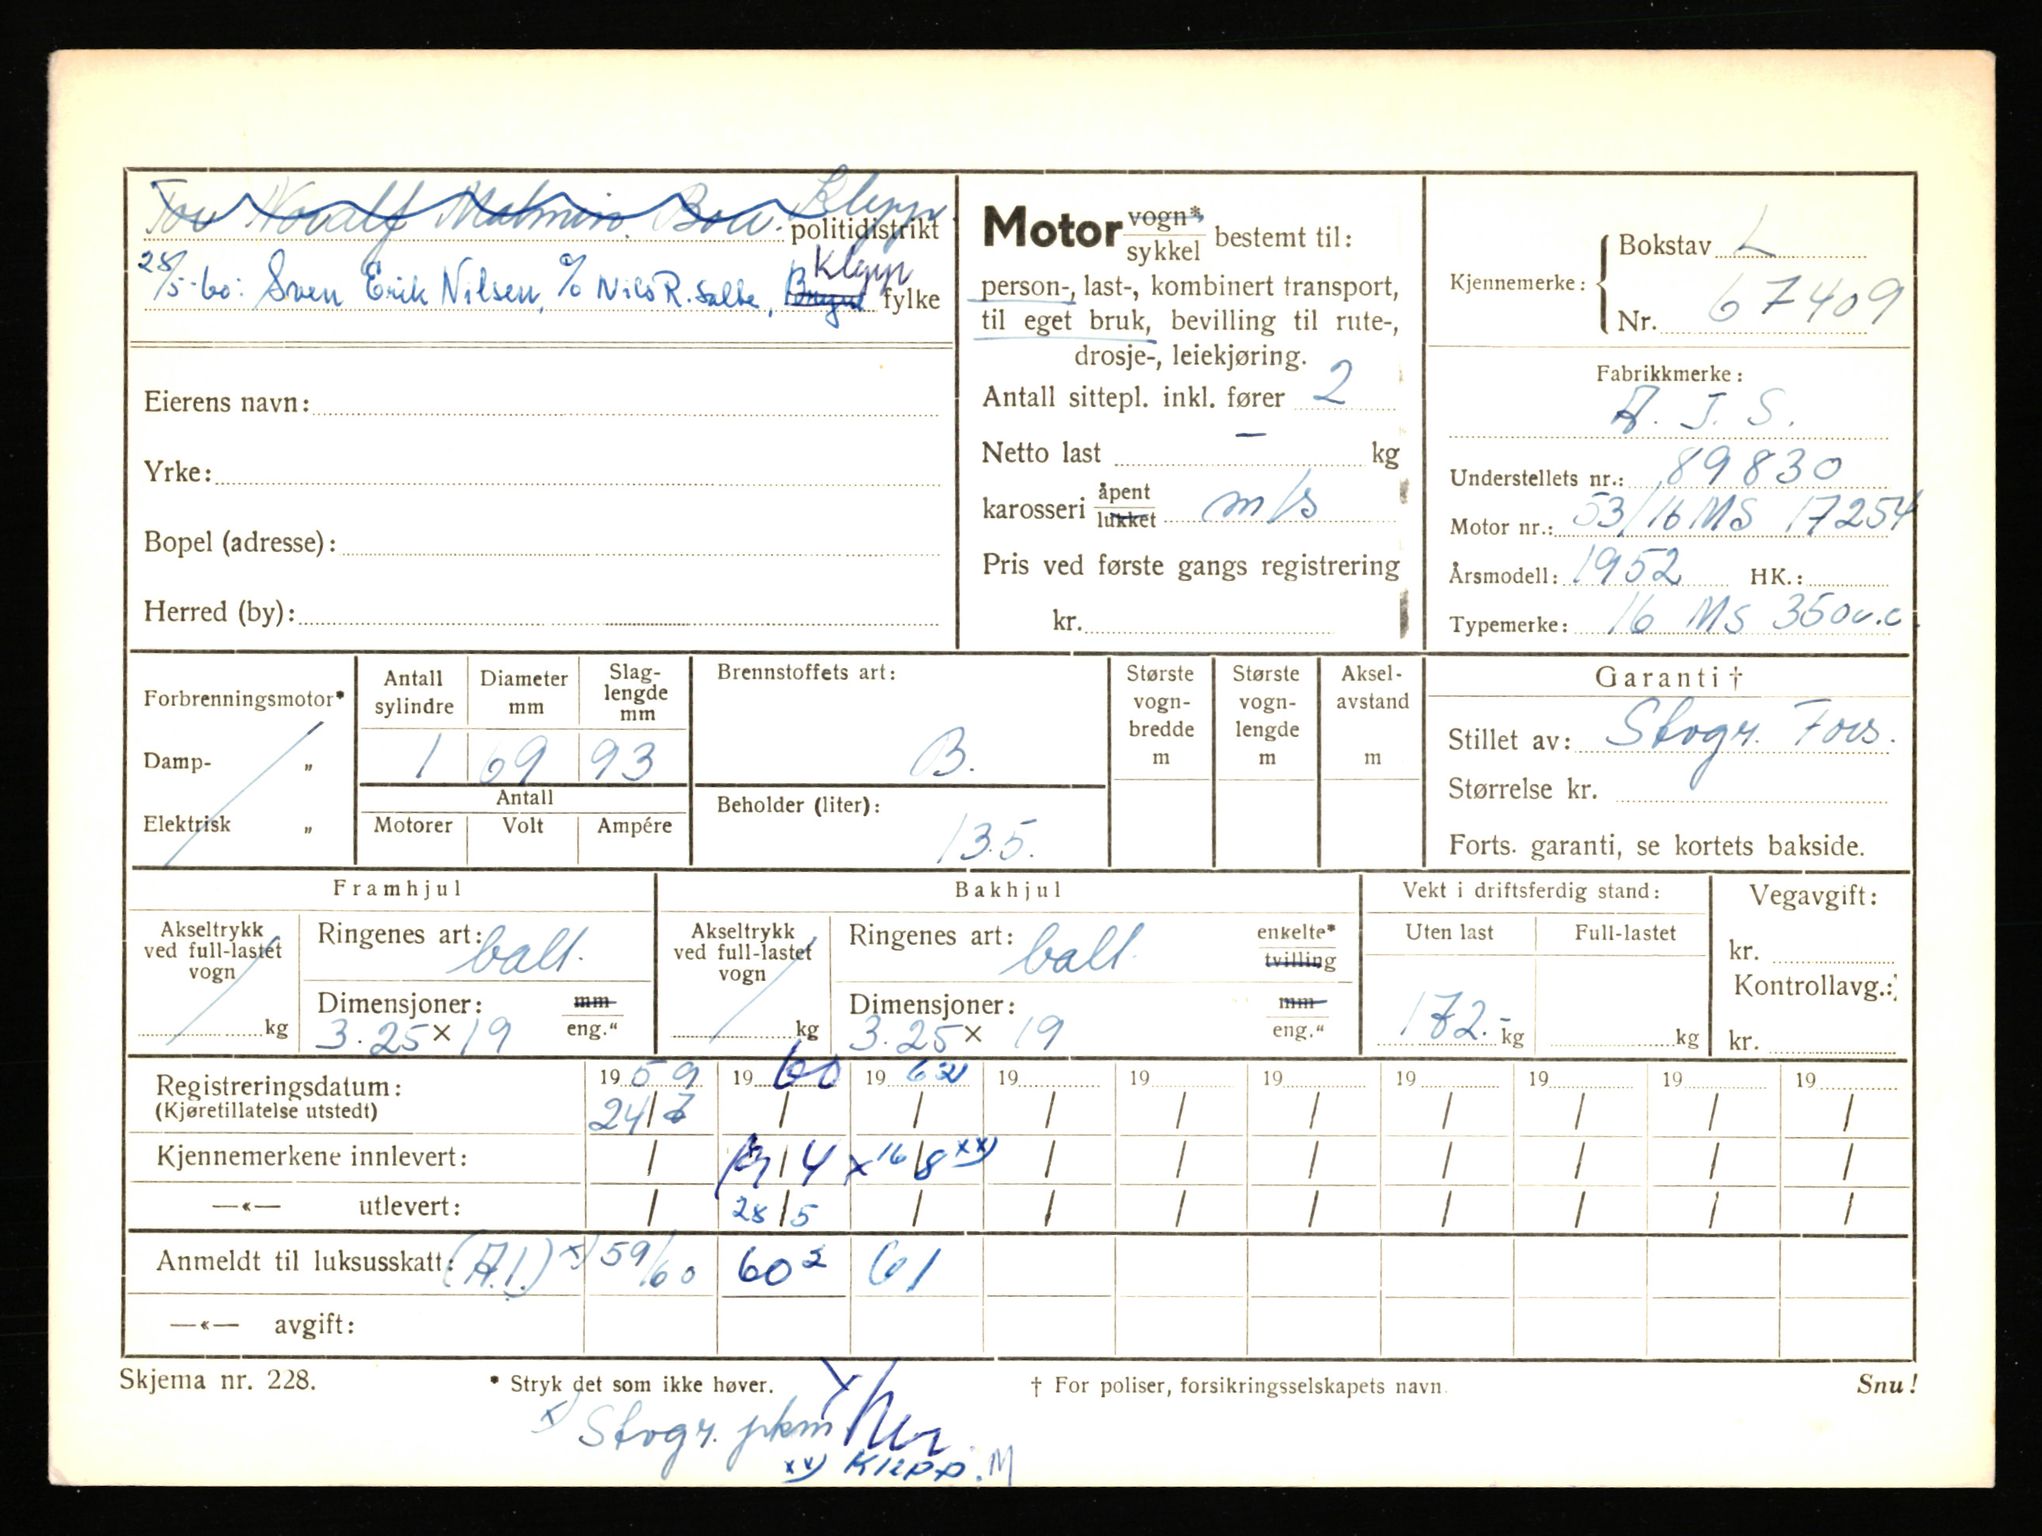 Tor Noralf Malmin. Bore. Klepp
politidistrikt
28/5-60: Sven Erik Nilsen, c/o Nils R. Salte, Bryne Klepp fylke
Eierens navn:
Yrke:
Bopel (adresse):
Herred (by):
Motor vogn* sykkel bestemt til:
person-, last-, kombinert transport,
til eget bruk, bevilling til rute-,
drosje-, leiekjøring.
Antall sittepl. inkl. fører 2
Netto last – kg
karosseri åpent lukket m/s
Pris ved første gangs registrering
kr.
Kjennemerke: Bokstav L
Nr. 67409
Fabrikkmerke:
A. J. S.
Understellets nr.: 89830
Motor nr.: 53/16 MS 17254
Årsmodell: 1952 HK.:
Typemerke: 16 MS 350 c.c.
Forbrenningsmotor*
Damp- „
Elektrisk „
Antall sylindre Diameter mm Slag- lengde mm
1 69 93
Antall
Motorer Volt Ampére
Brennstoffets art:
B.
Beholder (liter):
13.5.
Største vogn- bredde m
Største vogn- lengde m
Aksel- avstand m
Garanti †
Stillet av: Stvgr. Fors.
Størrelse kr.
Forts. garanti, se kortets bakside.
Framhjul
Akseltrykk ved full-lastet vogn kg
Ringenes art: ball.
Dimensjoner: mm eng."
3.25 x 19
Bakhjul
Akseltrykk ved full-lastet vogn kg
Ringenes art: ball. enkelte* tvilling
Dimensjoner: mm eng."
3.25 x 19
Vekt i driftsferdig stand:
Uten last Full-lastet
172.- kg kg
Vegavgift:
kr.
Kontrollavg.:
kr.
Registreringsdatum: 1959 1960 1962 19 19 19 19 19 19 19
(Kjøretillatelse utstedt) 24/7 / / / / / / / / /
Kjennemerkene innlevert: / /4 x 16/8 xx) / / / / / / /
—«— utlevert: / 28/5 / / / / / / / /
Anmeldt til luksusskatt: (A.1.) x) 59/60 60² 61
—«— avgift:
Skjema nr. 228. * Stryk det som ikke høver. † For poliser, forsikringsselskapets navn. Snu!
x) Stvgr. pkm
xx) Klepp. M